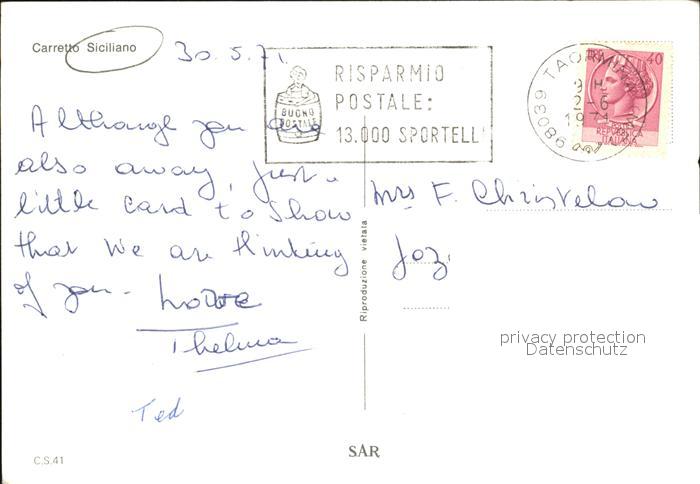 Carretto Siciliano
30.5.71.
RISPARMIO
POSTALE:
13.000 SPORTELLI
BUONO
POSTALE
98039 TAORMINA
9 H
2-6
1971
40
POSTE
REPUBBLICA
ITALIANA
Although you are
also away, just a
little card to show
that we are thinking
of you - Love
Thelma
Ted
Mrs F.
Riproduzione vietata
privacy protection
Datenschutz
C.S.41
SAR